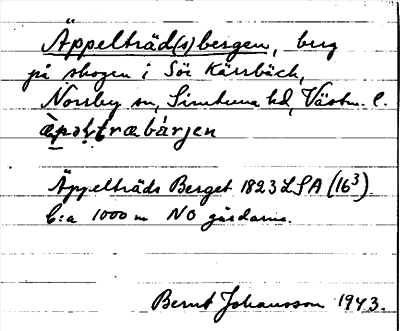 Äppelträd(s)bergen, berg
på skogen i Sör Kärrbäck,
Norrby sn, Simtuna hd, Västm. l.
äpəl,træbárjen
Äppelträds Berget 1823 LSA (16³)
C:a 1000 m NO gårdarna.
Bernt Johansson 1943.